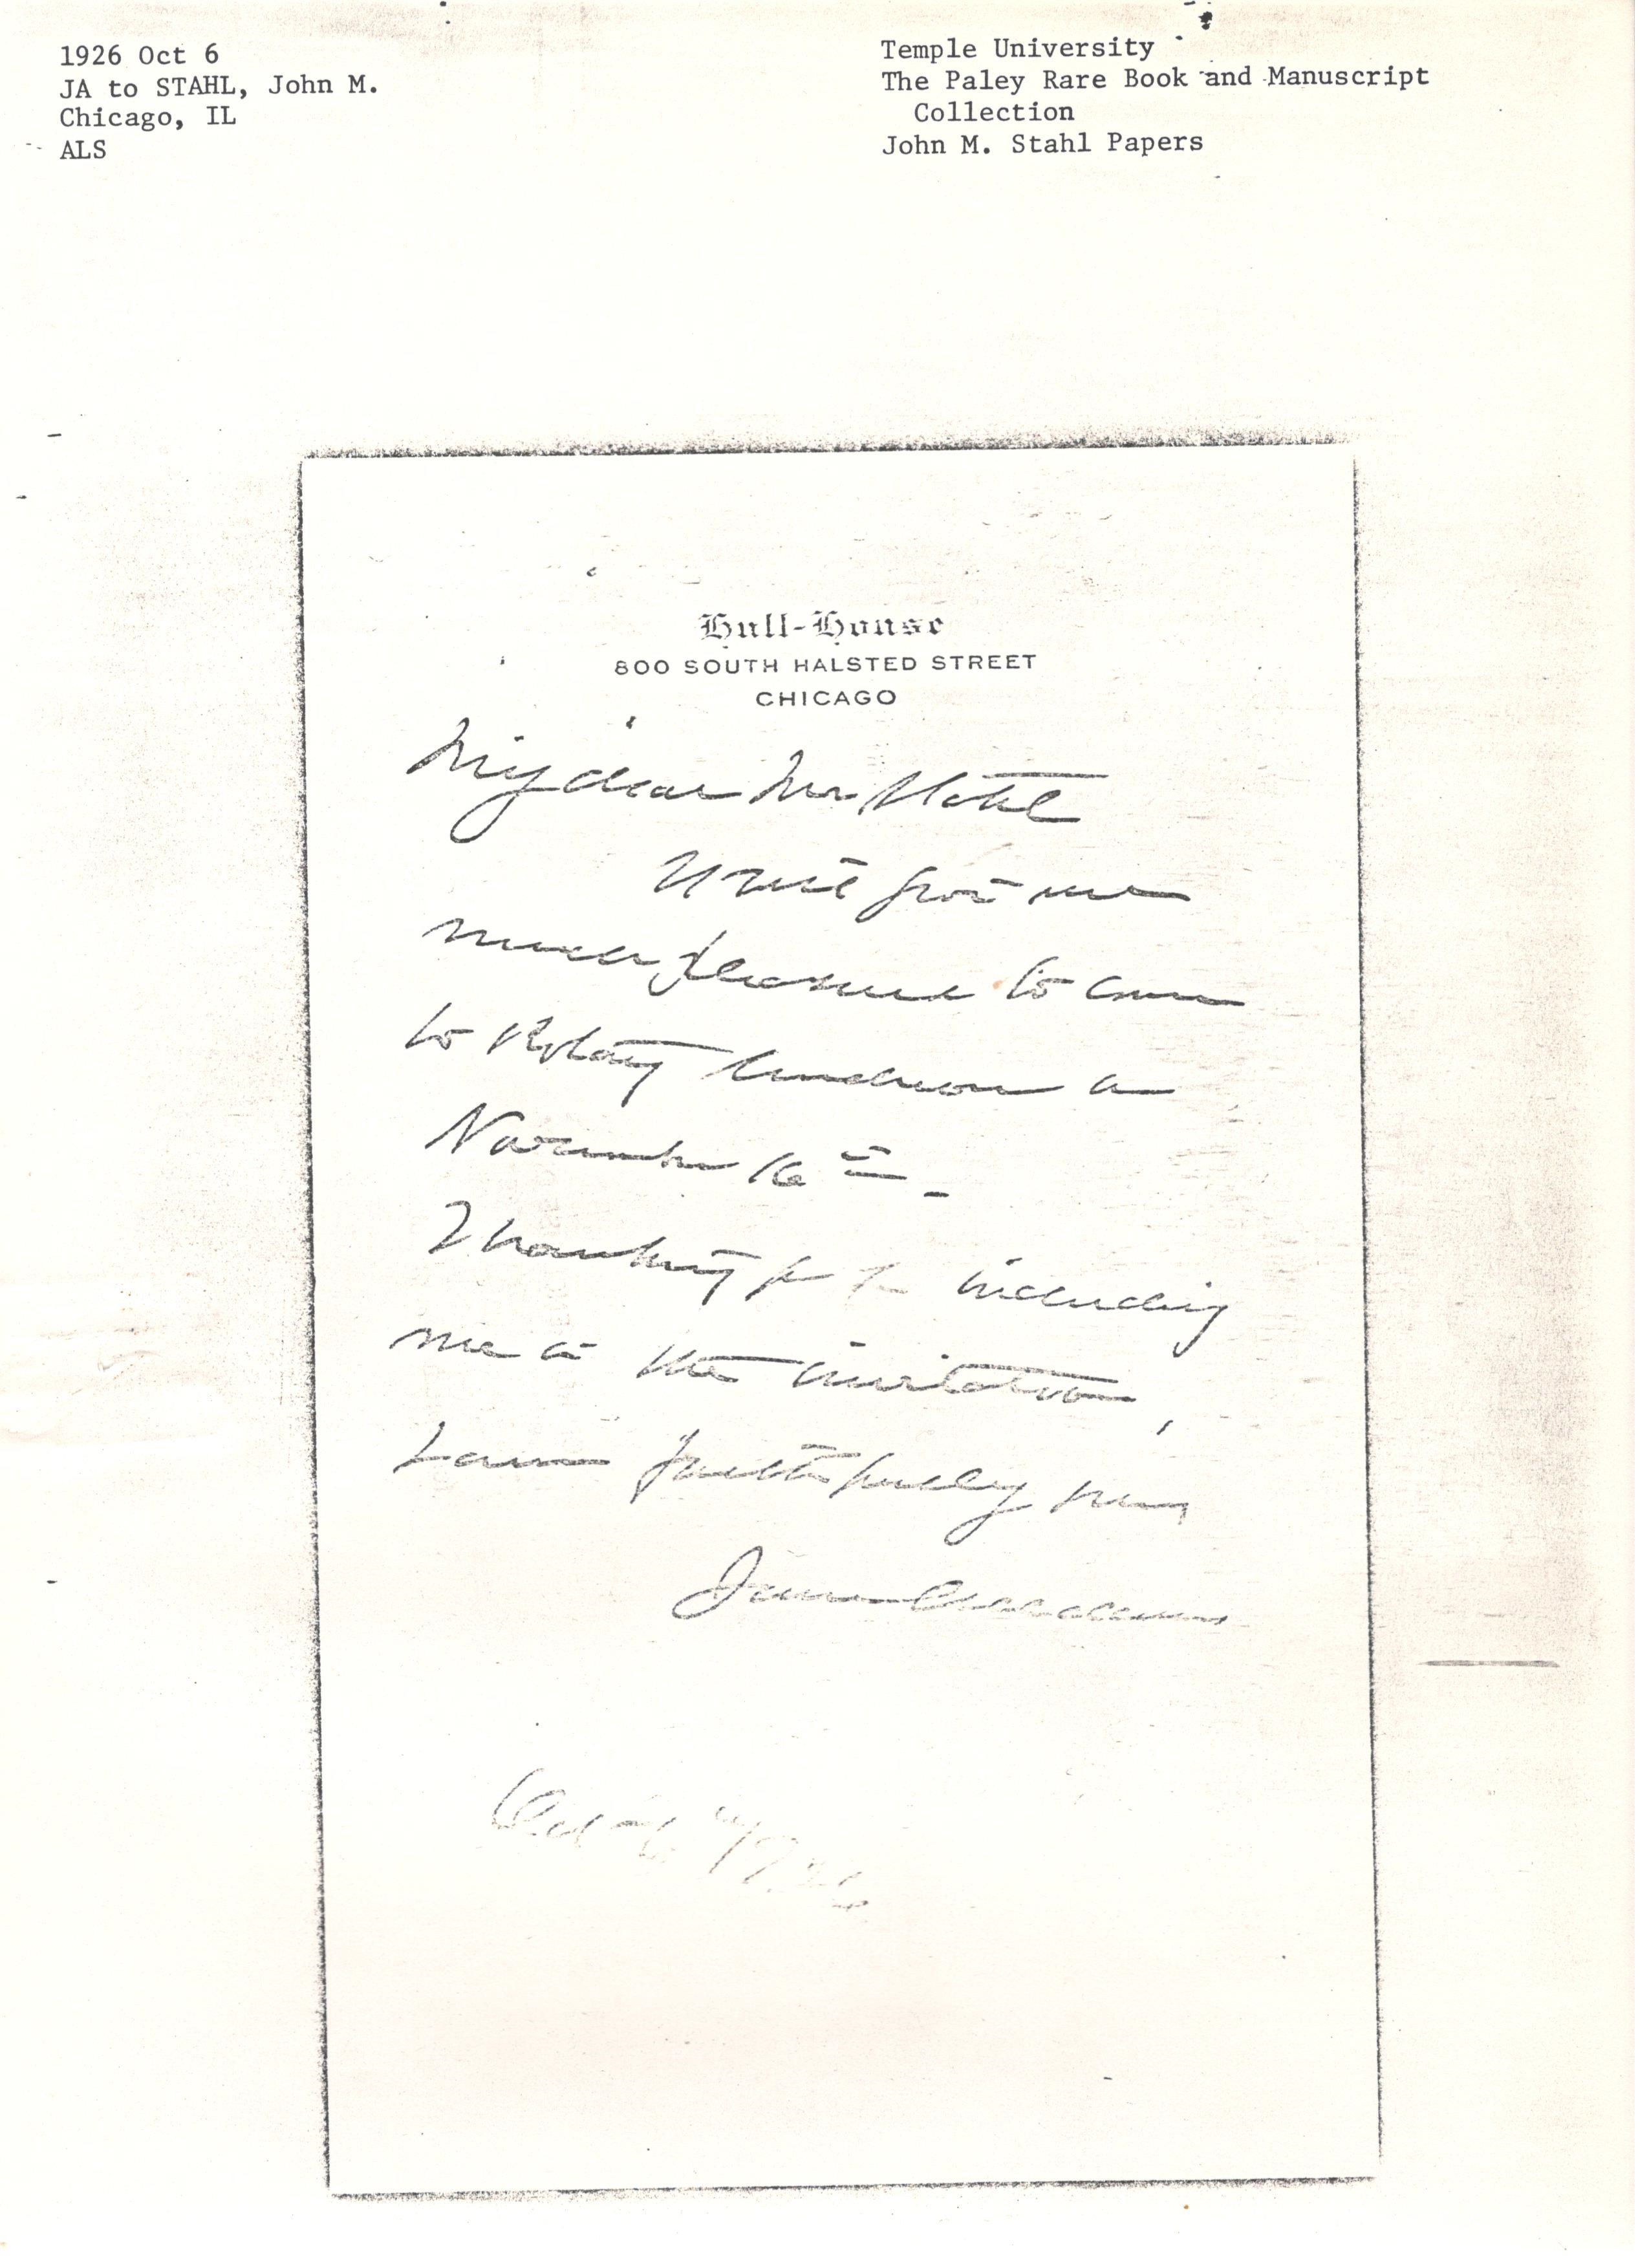 1926 Oct 6
JA to STAHL, John M.
Chicago, IL
ALS
Temple University
The Paley Rare Book and Manuscript
Collection
John M. Stahl Papers
Hull-House
800 SOUTH HALSTED STREET
CHICAGO
My dear Mr Stahl
It will give me
much pleasure to come
to Rotary luncheon on
November 16th -
Thanking you for including
me in the invitation,
I am faithfully yours
Jane Addams
Oct 6 1926